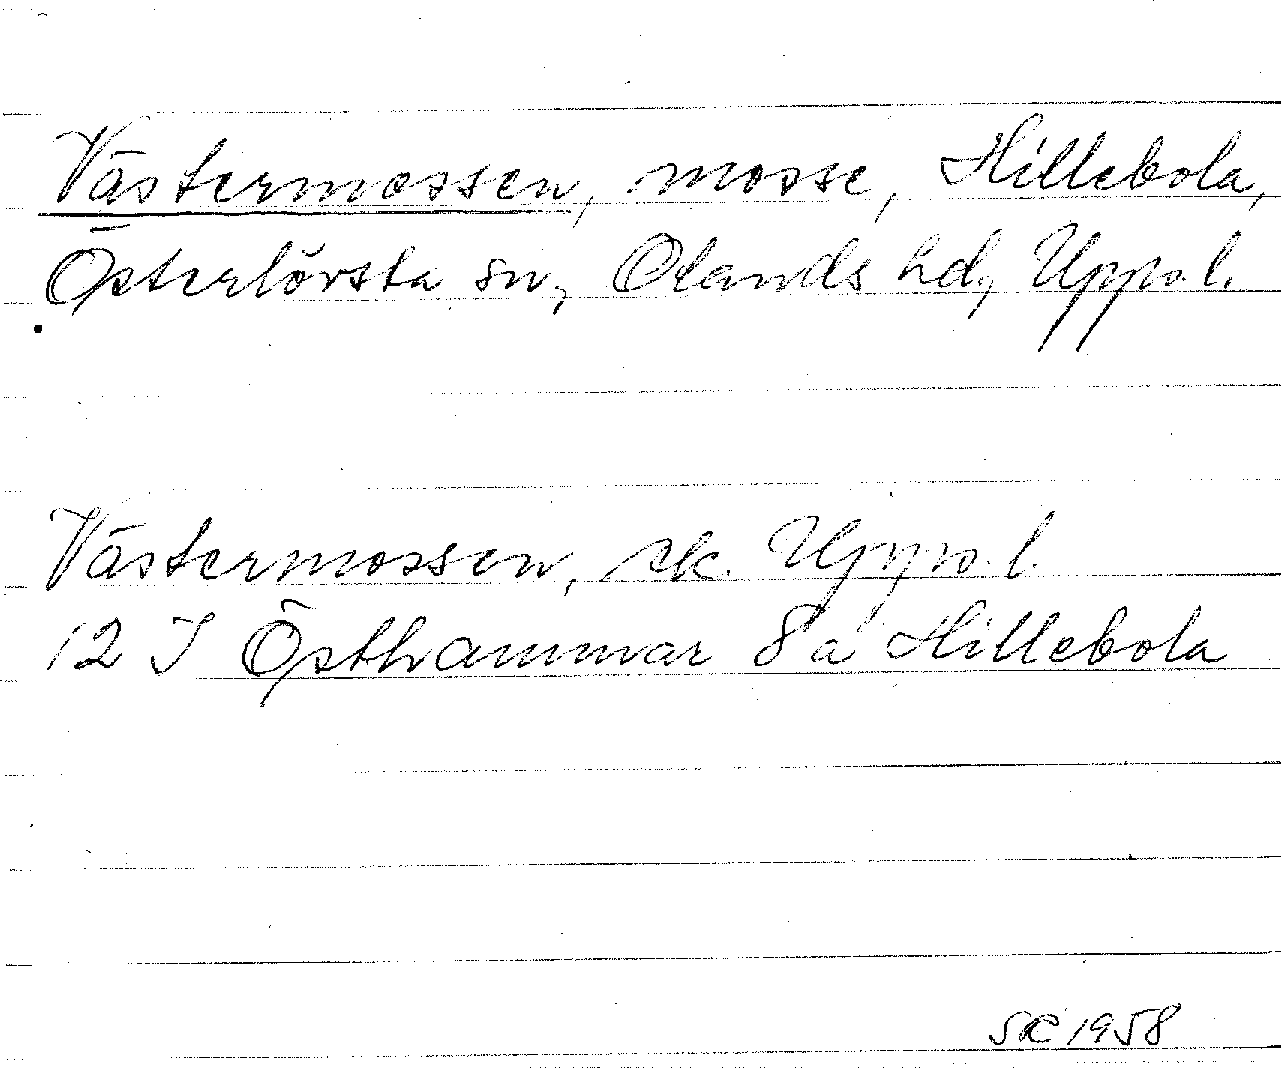 Västermossen, mosse, Hillebola,
Österlövsta sn, Olands hd, Uppl.
Västermossen, sk. Uppl.
12 I Östhammar 8 a Hillebola
1958